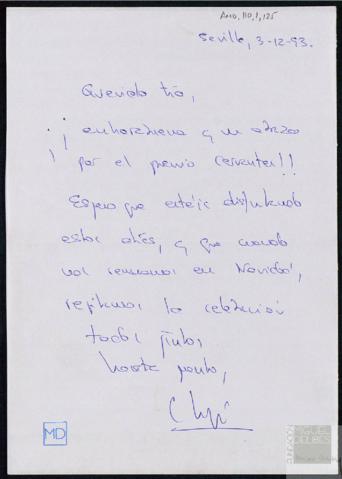 AMD,110,1,125
Sevilla, 3-12-93.
Querido tío,
¡¡ enhorabuena y un abrazo
por el premio Cervantes!!
Espero que estéis disfrutando
estos días, y que cuando
nos reunamos en Navidad,
repitamos la celebración
todos juntos.
Hasta pronto,
MD
FUNDACIÓN
MIGUEL
DELIBES